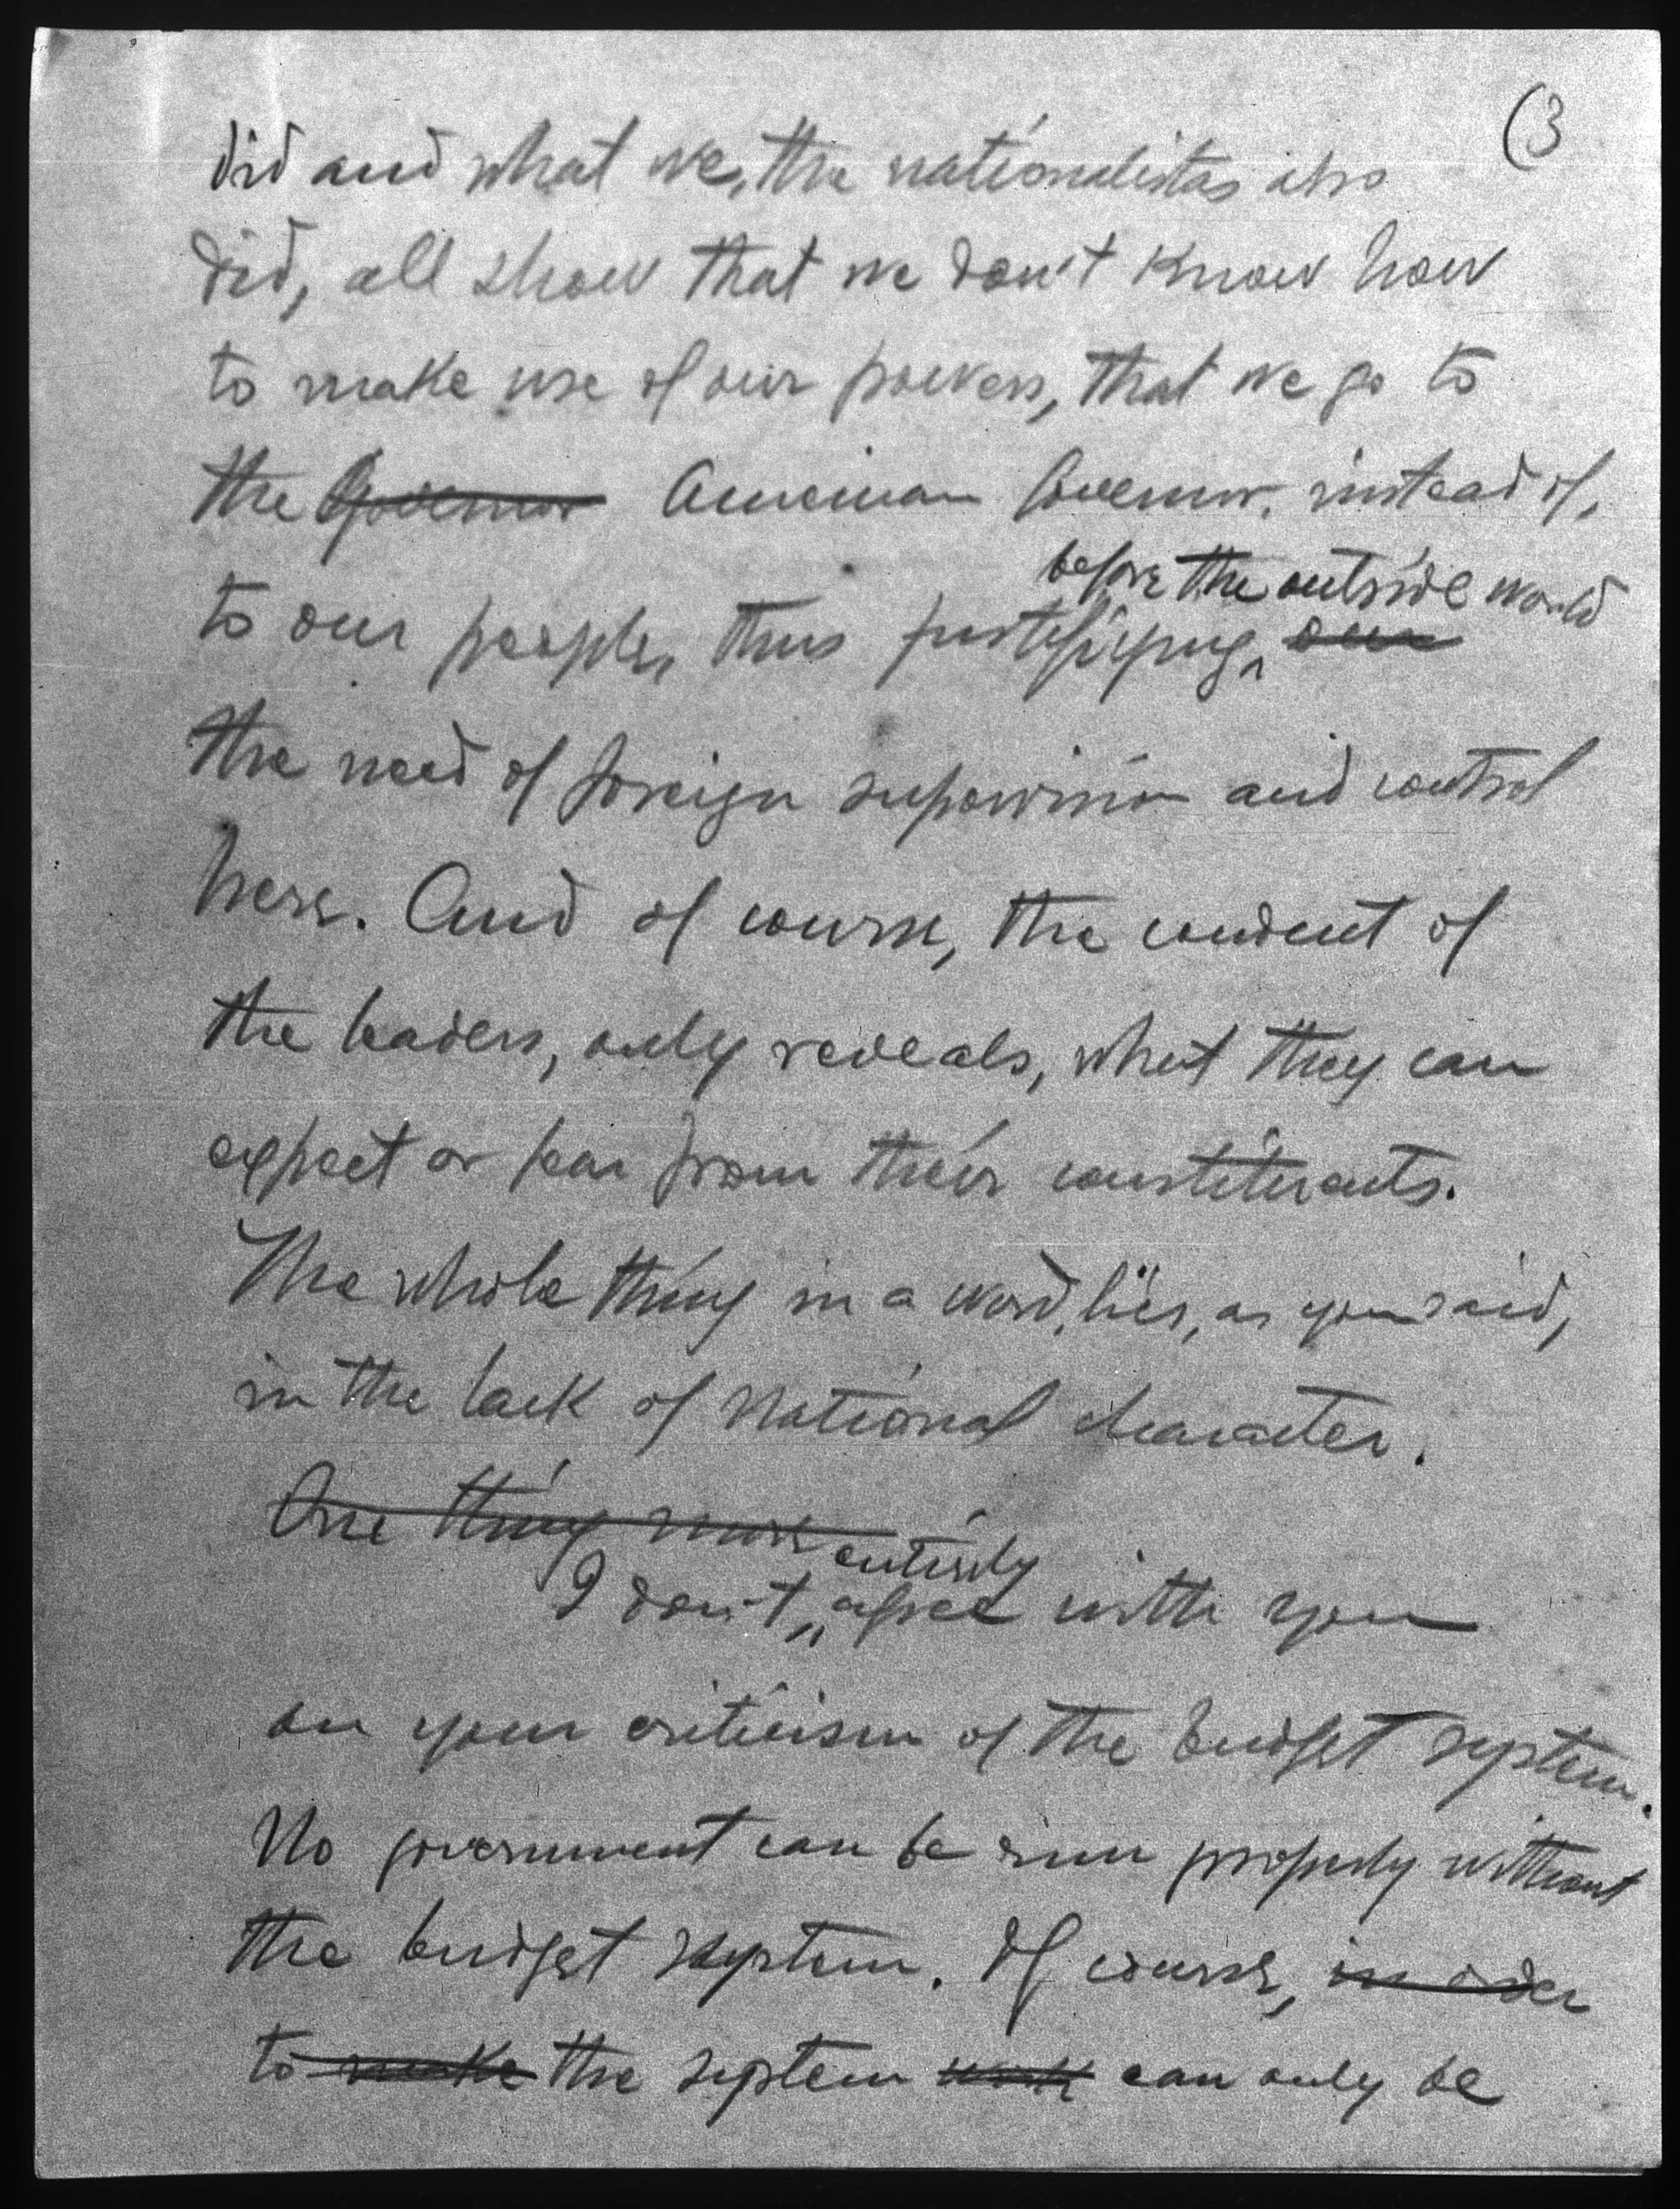 (3
did and what we, the nationalistas also
did, all show that we don't know how
to make use of our powers, that we go to
the Governor American Governor, instead of,
before the outside world
to our people, thus justifiying, our
the need of foreign supervision and control
here. And of course, the conduct of
the leaders, only reveals, what they can
expect or fear from their constituents.
The whole thing in a word, lies, as you said,
in the lack of National character.
One thing more
entirely
I don't agree with you
on your criticism of the budget system.
No government can be run properly without
the budget system. Of course, in order
to make the system work can only be